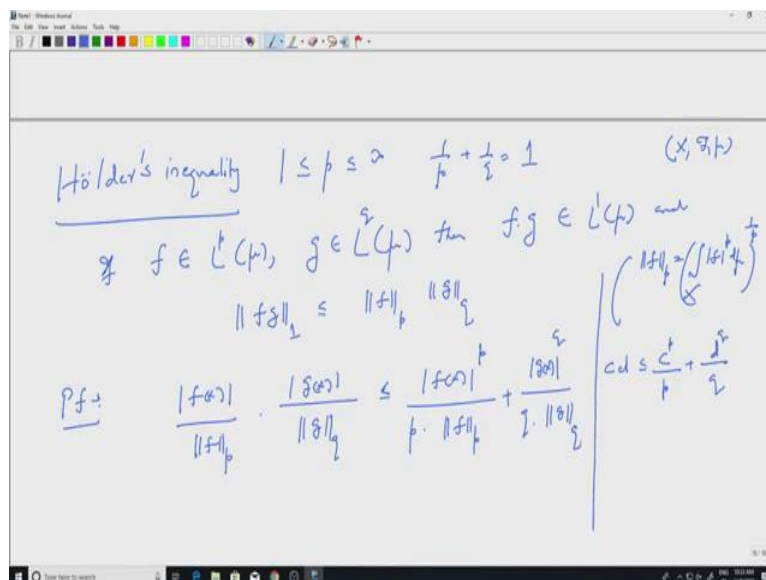 Note1 - Windows Journal
File Edit View Insert Actions Tools Help
Hölder's inequality 1 ≤ p ≤ ∞ 1/p + 1/q = 1 (X, F, μ)
If f ∈ L^p(μ), g ∈ L^q(μ) then f.g ∈ L^1(μ) and
||fg||_1 ≤ ||f||_p ||g||_q
||f||_p = (∫_X |f|^p dμ)^{1/p}
Pf: |f(x)|/||f||_p · |g(x)|/||g||_q ≤ |f(x)|^p/(p. ||f||_p) + |g(x)|^q/(q. ||g||_q)
cd ≤ c^p/p + d^q/q
Type here to search
ENG 10:53 AM